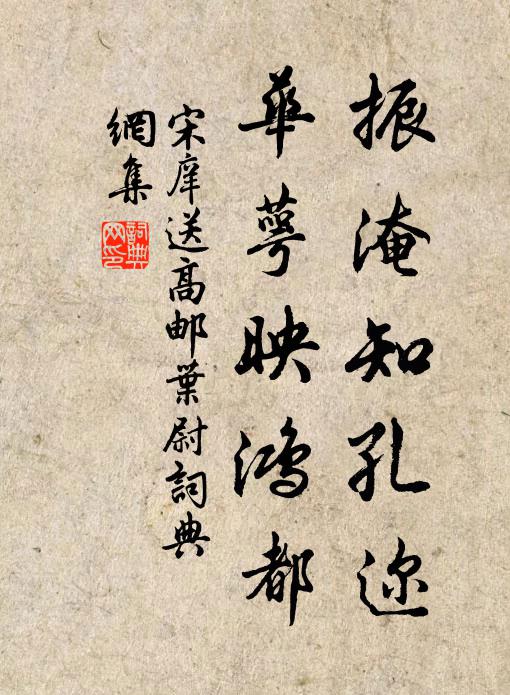 振淹知孔迩
華萼映鴻都
宋庠送高邮葉尉詞典
網集
詞典
网印